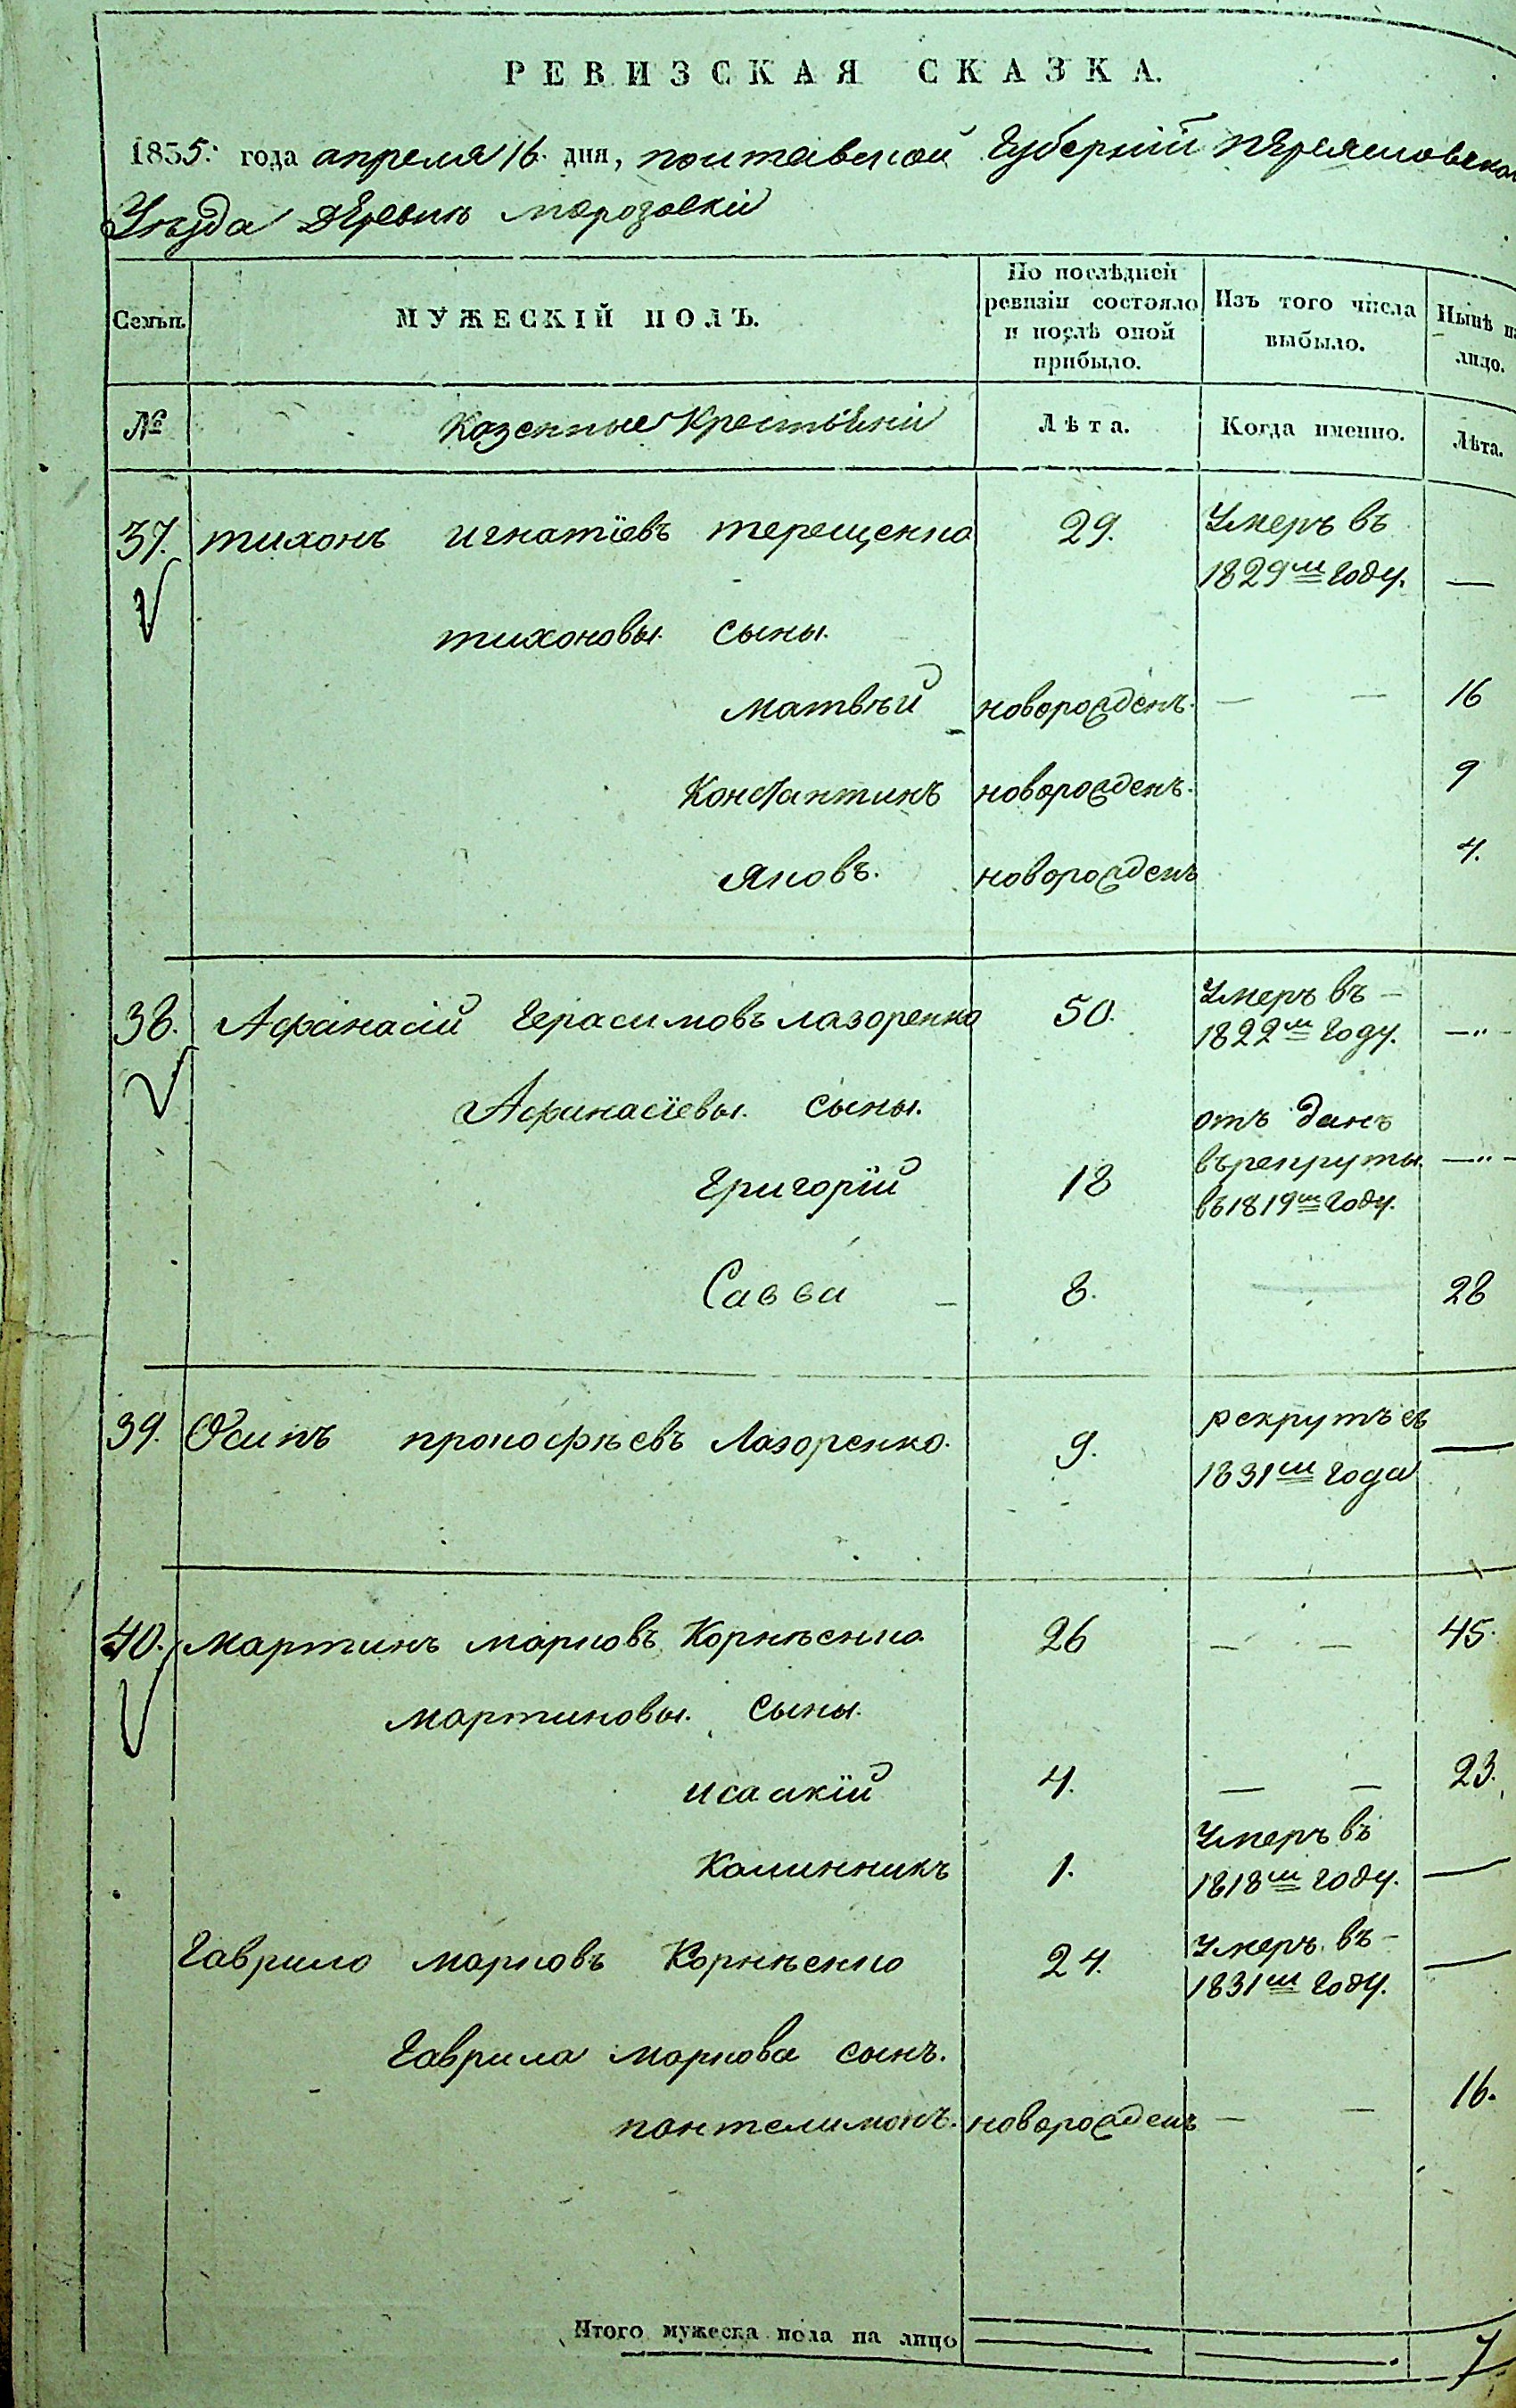 РЕВИЗСКАЯ СКАЗКА.
1835: года апреля 16. дня, полтавской Губернiй пЕреясловской
Уѣзда дЕревнѣ морозовкi
Семьи.
МУЖЕСКIЙ ПОЛЪ.
По послѣдней
ревизiи состояло
и послѣ оной
прибыло.
Изъ того числа
выбыло.
Нынѣ на
лицо.
№
Казенные Крестьяни
Лѣта.
Когда именно.
Лѣта.
37. тихонъ игнатiевъ терещенко 29. Умеръ въ
1829м году. —
тихоновы сыны.
матвѣй новорожденъ. — — 16
Константинъ новорожденъ. 9
яковъ. новорожденъ 4.
38. Афанасiй Герасимовъ лазоренко 50. Умеръ въ —
1822м году. —„—
Афанасiевы. сыны.
отъ данъ
Григорiй 18 въ рекруты —„—
въ 1819м году.
Савва — 8. 28
39. Осипъ прокофѣевъ Лазоренко. 9. рекрутъ съ
1831м года —
40. мартинъ марковъ Корнѣенко 26 — — 45.
мартиновы. сыны.
исаакiй 4. — — 23.
Калинникъ 1. Умеръ въ
1818м году. —
Гаврило марковъ Корнѣенко 24. Умеръ въ —
1831м году. —
Гаврила маркова сынъ.
пантелимонъ. новорожденъ — — 16.
Итого мужеска пола на лицо — — 7